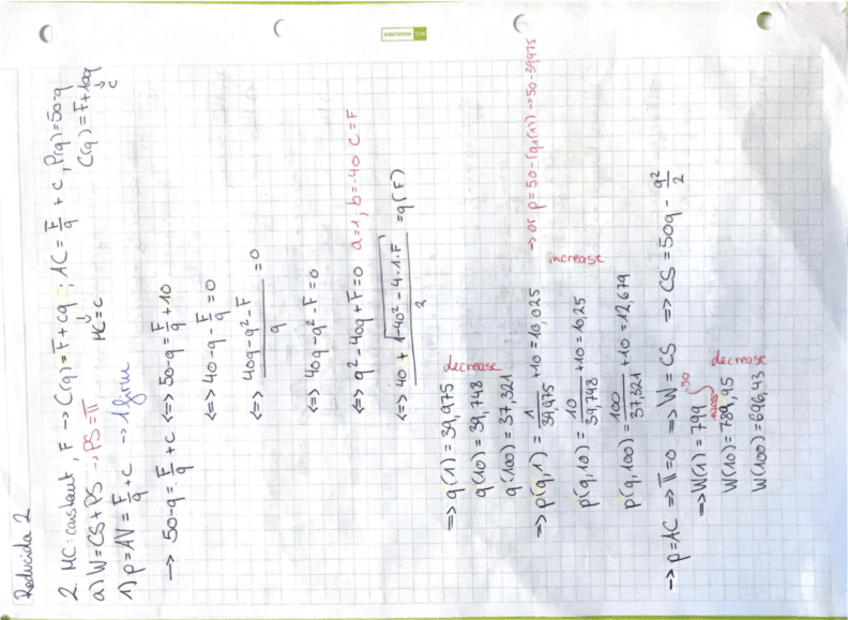 Reducida 2
2. MC: constant, F → C(q) = F + cq ; AC = F/q + c, P(q) = 50-q
MC = c
C(q) = F + 10q
c
a) W = CS + PS → PS = π
1) p = AV = F/q + c → 1 firm
→ 50-q = F/q + c <=> 50-q = F/q + 10
<=> 40 - q - F/q = 0
<=> 40q - q² - F / q = 0
<=> 40q - q² - F = 0
<=> q² - 40q + F = 0 a=1; b=-40 C=F
<=> 40 + √-40² - 4·1·F / 2 = q(F)
=> q(1) = 39,975 decrease
q(10) = 39,748
q(100) = 37,321
=> p(q,1) = 1/39,975 + 10 = 10,025 → or p = 50 - (q(1)) → 50 - 39,975
p(q,10) = 10/39,748 + 10 = 10,25 increase
p(q,100) = 100/37,321 + 10 = 12,679
→ p = AC => π = 0 => W = CS => CS = 50q - q²/2
→ W(1) = 799
W(10) = 789,95 decrease
W(100) = 696,43